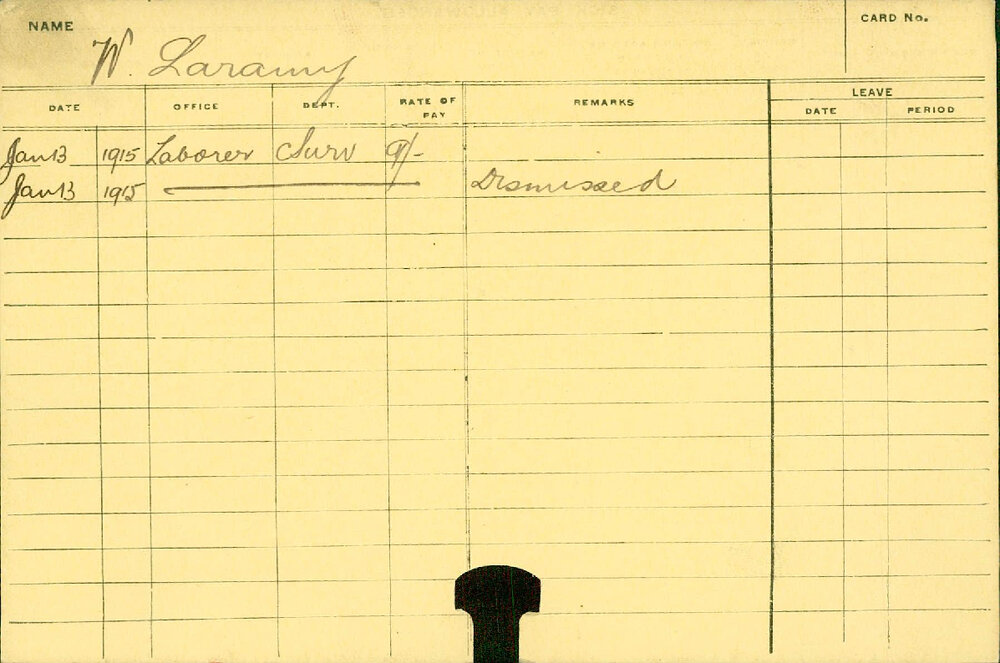 NAME
CARD No.
W. Laramy
DATE OFFICE DEPT. RATE OF PAY REMARKS LEAVE
DATE PERIOD
Jan 13 1915 Laborer Surv 9/-
Jan 13 1915 Dismissed